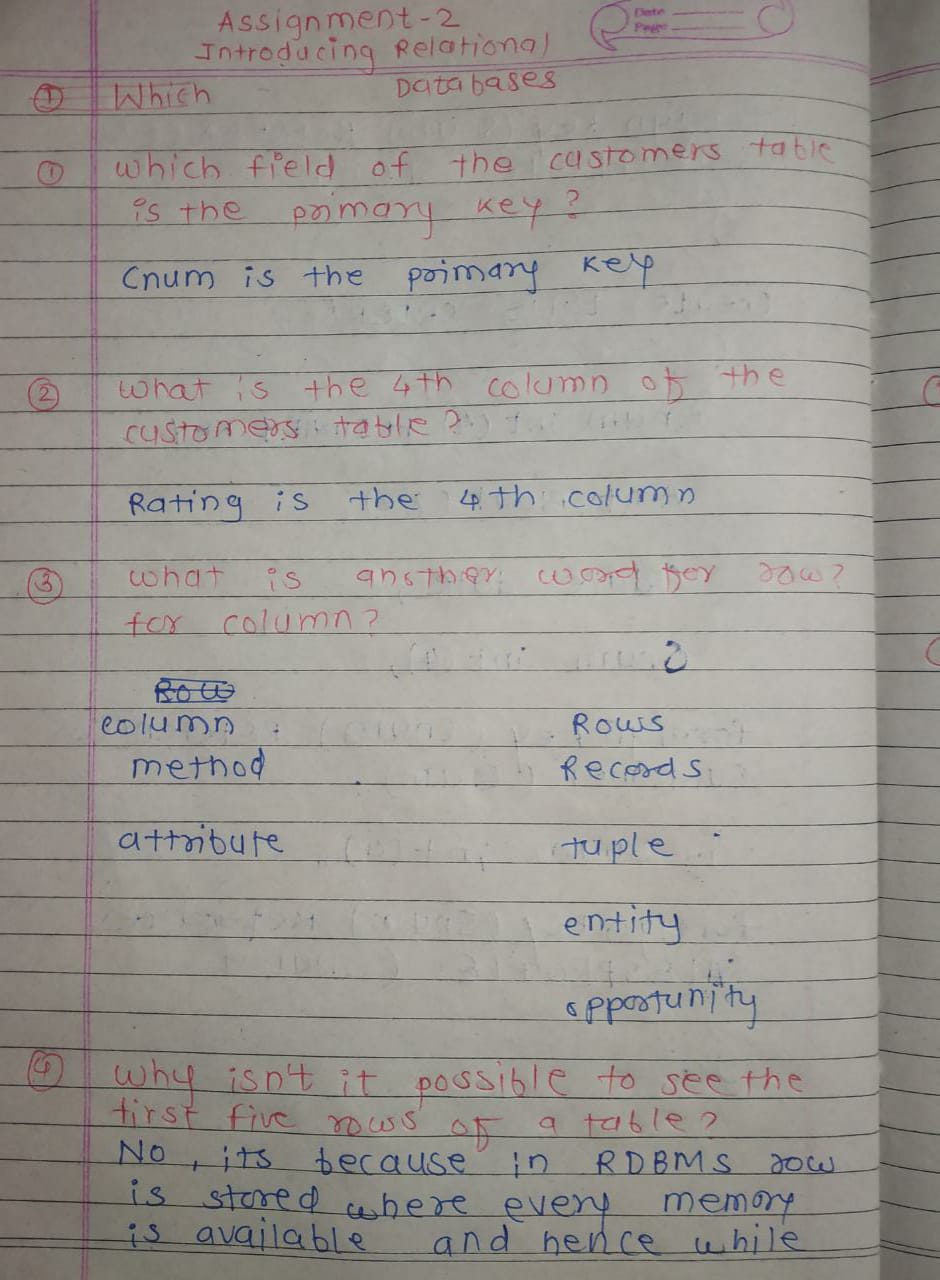 Assignment-2
Introducing Relational
Databases
Date
Page
① Which
① which field of the customers table
is the primary key?
Cnum is the primary key
② What is the 4th column of the
customers table?
Rating is the 4th column
③ what is another word for row?
for column?
Row
column
method
attribute
Rows
Records
tuple
entity
opportunity
④ Why isn't it possible to see the
first five rows of a table?
No, its because in RDBMS row
is stored where every memory
is available and hence while